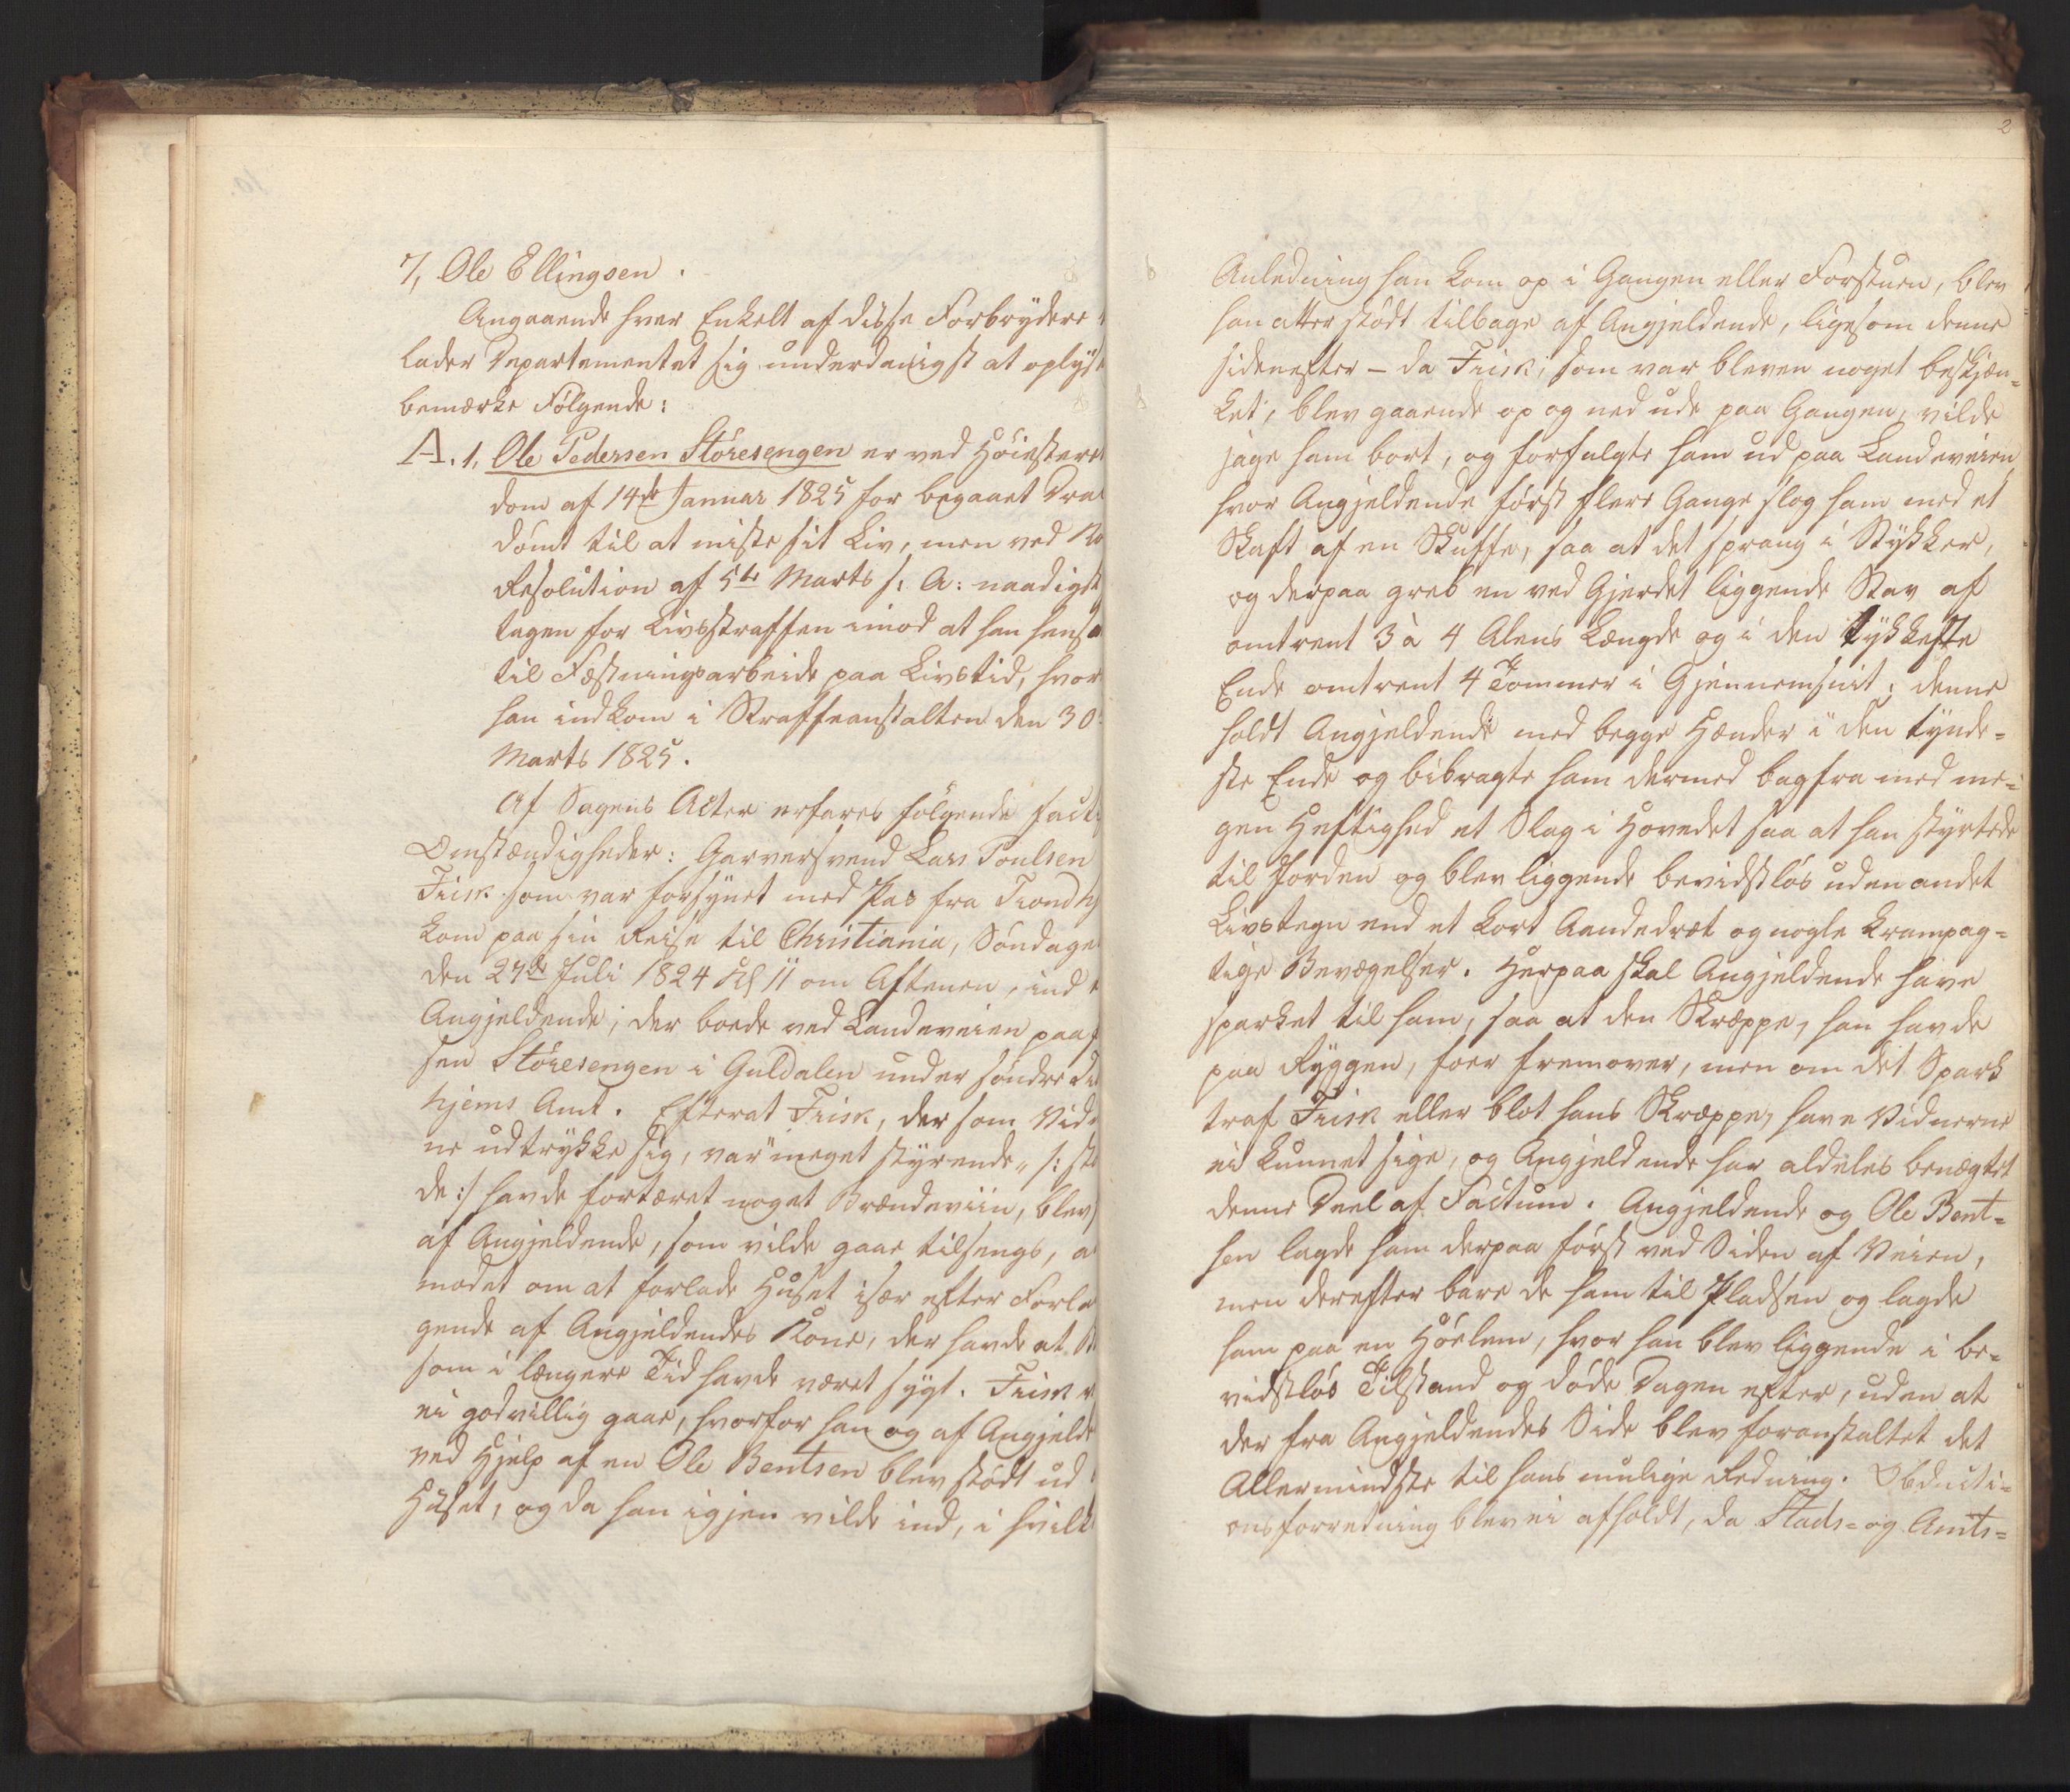 7, Ole Ellingsen.
Angaaende hver Enkelt af disse Forbrydere
lader Departementet sig underdanigst at oplyse
bemærke Følgende:
A. 1, Ole Pedersen Störesengen er ved Höiesteret
dom af 14de Januar 1825 for begaaet Dra
dömt til at miste sit Liv, men ved
Resolution af 5te Marts s: A: naadigst
tagen for Livsstraffen imod at han hens
til Fæstningsarbeide paa Livstid, hvor
han indkom i Straffeanstalten den 30
Marts 1825.
Af Sagens Acter erfares fölgende fact
Omstændigheder: Garversvend Lars Poulsen
Frisk som var forsynet med Pas fra Trondhj
kom paa sin Reise til Christiania, Söndage
den 27de Juli 1824 Kl 11 om Aftenen, ind
Angjeldende, der boede ved Landeveien paa
sen Störesengen i Guldalen under söndre
hjems Amt. Efterat Frisk, der som Vid
ne udtrykke sig, var "meget styrende" /: st
de :/ havde fortæret noget Brændeviin, blev
af Angjeldende, som vilde gaae tilsengs, a
modet om at forlade Huset især efter Forla
gende af Angjeldendes Kone, der havde et
som i længere Tid havde været sygt. Frisk
ei godvillig gaae, hvorfor han og af Angjelde
ved Hjelp af en Ole Bentsen blev stödt ud
Huset, og da han igjen vilde ind, i hvilk
2
Anledning han kom op i Gangen eller Forstuen, blev
han atter stödt tilbage af Angjeldende, ligesom denne
sidenefter – da Frisk, som var bleven noget beskjæn=
ket, blev gaaende op og ned ude paa Gangen, vilde
jage ham bort, og forfulgte ham ud paa Landeveien,
hvor Angjeldende först flere Gange slog ham med et
Skaft af en Skuffe, saa at det sprang i Stykker,
og derpaa greb en ved Gjerdet liggende Stav af
omtrent 3 à 4 Alens Længde og i den tykkeste
Ende omtrent 4 Tommer i Gjennemsnit; denne
holdt Angjeldende med begge Hænder i den tynde=
ste Ende og bibragte ham dermed bagfra med me=
gen Heftighed et Slag i Hovedet saa at han styrtede
til Jorden og blev liggende bevidstlös uden andet
Livstegn end et kort Aandedræt og nogle krampag=
tige Bevægelser. Herpaa skal Angjeldende have
sparket til ham, saa at den Skræppe, han havde
paa Ryggen, foer fremover, men om det Spark
traf Frisk eller blot hans Skræppe, have Vidnerne
ei kunnet sige, og Angjeldende har aldeles benægtet
denne Deel af Factum. Angjeldende og Ole Bent=
sen lagde ham derpaa först ved Siden af Veien,
men derefter bare de ham til Pladsen og lagde
ham paa en Höelem, hvor han blev liggende i be=
vidstlös Tilstand og döde Dagen efter, uden at
der fra Angjeldendes Side blev foranstaltet det
Allermindste til hans mulige Redning. Obducti=
onsforretning blev ei afholdt, da Stads= og Amts=